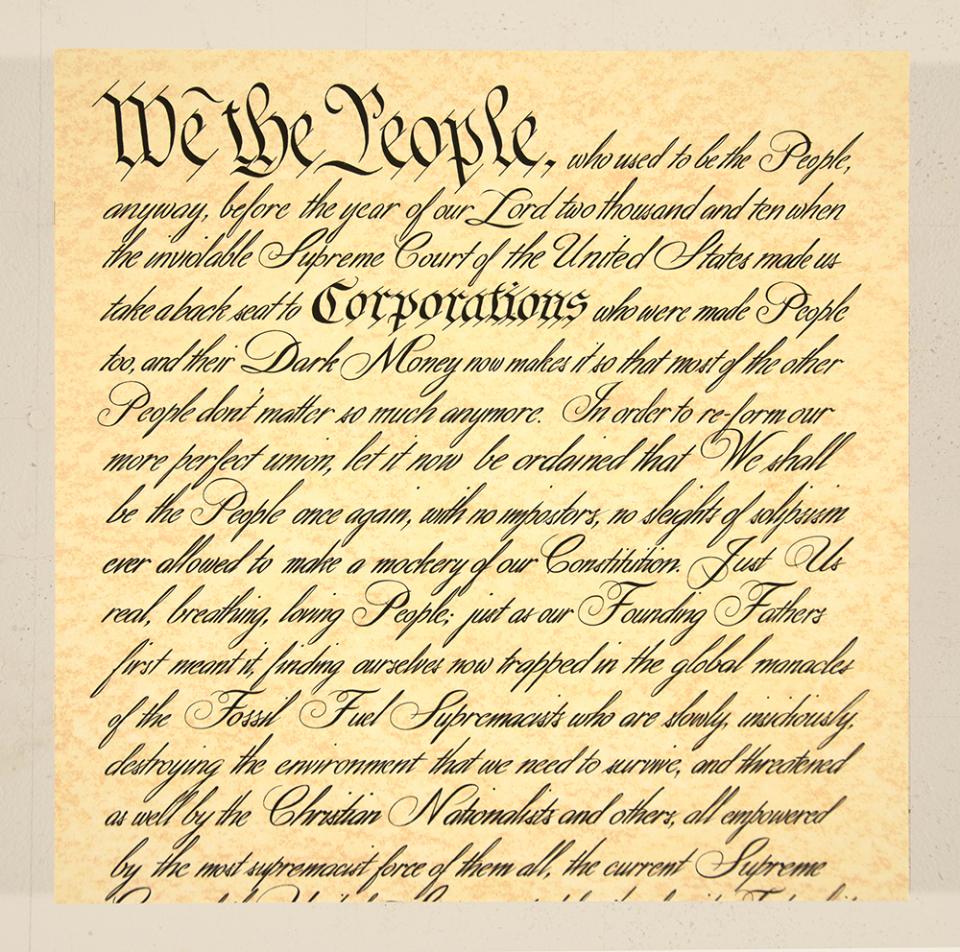 We the People, who used to be the People,
anyway, before the year of our Lord two thousand and ten when
the inviolable Supreme Court of the United States made us
take a back seat to Corporations who were made People
too, and their Dark Money now makes it so that most of the other
People don't matter so much anymore. In order to re-form our
more perfect union, let it now be ordained that We shall
be the People once again, with no impostors, no sleights of solipsism
ever allowed to make a mockery of our Constitution. Just Us
real, breathing, loving People; just as our Founding Fathers
first meant it, finding ourselves now trapped in the global manacles
of the Fossil Fuel Supremacists who are slowly, insidiously,
destroying the environment that we need to survive, and threatened
as well by the Christian Nationalists and others, all empowered
by the most supremacist force of them all, the current Supreme